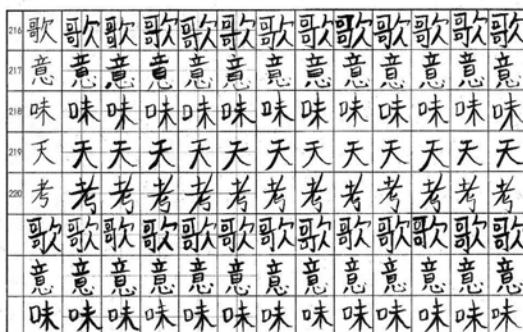 216 歌歌歌歌歌歌歌歌歌歌歌歌歌
217 意意意意意意意意意意意意意
218 味味味味味味味味味味味味味
219 天天天天天天天天天天天天天
220 考考考考考考考考考考考考考
歌歌歌歌歌歌歌歌歌歌歌歌歌
意意意意意意意意意意意意意
味味味味味味味味味味味味味